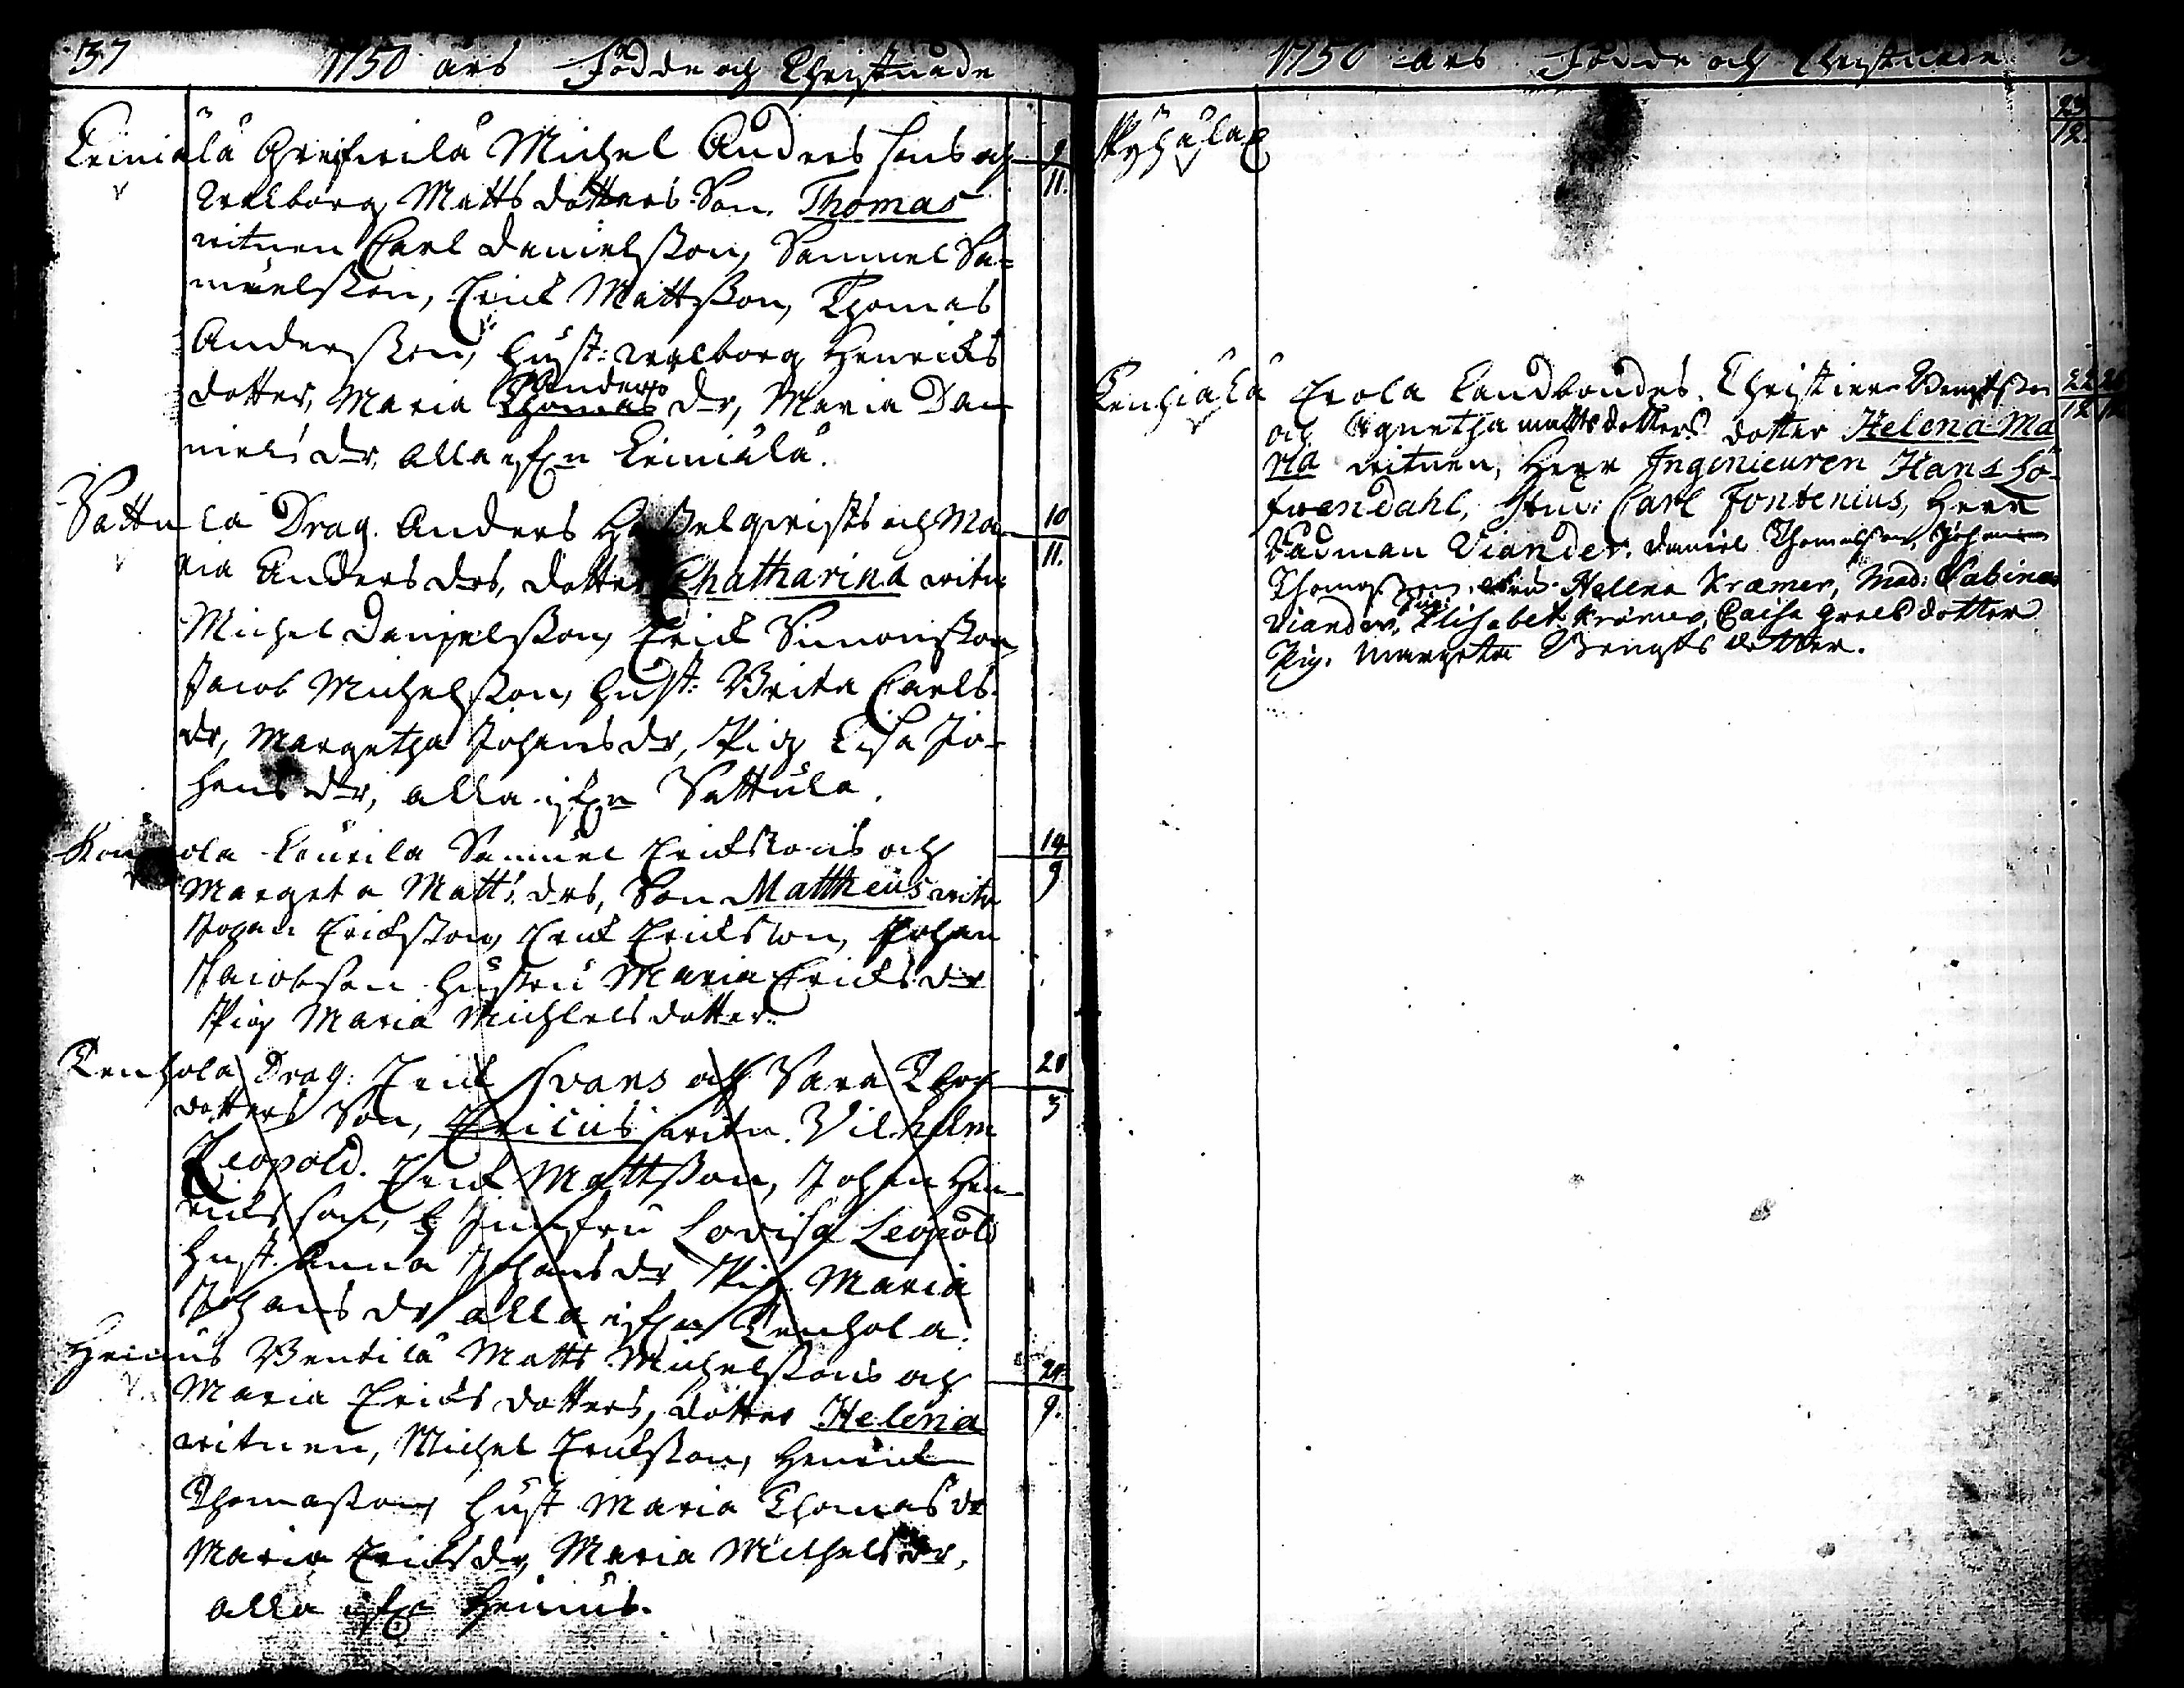 37 1750 års Födde och Christnade
Leiniälä Grejswilä Michel Anders sons och 9/11.
Walborg Matts dotters Son. Thomas
witnen Carl Danielsson, Samuel Sa=
muelsson, Erick Mattsson, Thomas
Andersson, hust: Walborg Henricks
Anders
dotter, Maria Thomas dr, Maria Dan
niels dr, alla ifrån Leiniälä.
Sattula Drag. Anders Hasselqvists och Ma- 10/11.
ria Anders drs, dotter Chatharina witn
Michel Danielsson, Erick Simonsson
Jacob Michelsson, hust: Brita Carls
dr, Margetha Johans dr, Pig Lisa Jo-
hans dr, alla ifrån Sattula.
ola Laurila Samuel Ericksons och 14/9
Margeta Matts drs, Son Mattheus witn
Johan Erickson, Erick Erickson, Johan
Jacobson Hustru Maria Ericks dr
Pig Maria Michlels dotter.
Tenhola Drag: Erick Svans och Sara Thos 20/3
dotters Son, Ericus witn. Vilhelm
Leopold. Erick Mattsson, Johan Hen-
ricksson, Jungfru Lovisa Leopold
Hust. Anna Johans dr Pig. Maria
Johans dr alla ifrån Tenhola.
Heinus Bentilä Matts Michelssons och 24/9.
Maria Ericks dotters, dotter Helena
witnen, Michel Ericksson, Henrick
Thomasson, hust Maria Thomas dr
Maria Ericks dr, Maria Michels dr,
alla ifrån Heinus.
1750 års Födde och Christnade
Pyhälax 23/12.
Tenhiälä Erola Landbondes. Christier Bengtsson 22/12 26/12
och Agnetha matts dotters dotter Helena Ma
ria witnen, Herr Ingenieuren Hans Lö-
fwendahl, Stud: Carl Fontenius, Herr
Rådman Viander. Daniel Thomasson, Johan
Thomasson. Helena Kræmer, Mad: Sabina
Viander, Elisabet Kræmer, Caisa Greels dotter
Pig. Margeta Bengts dotter.